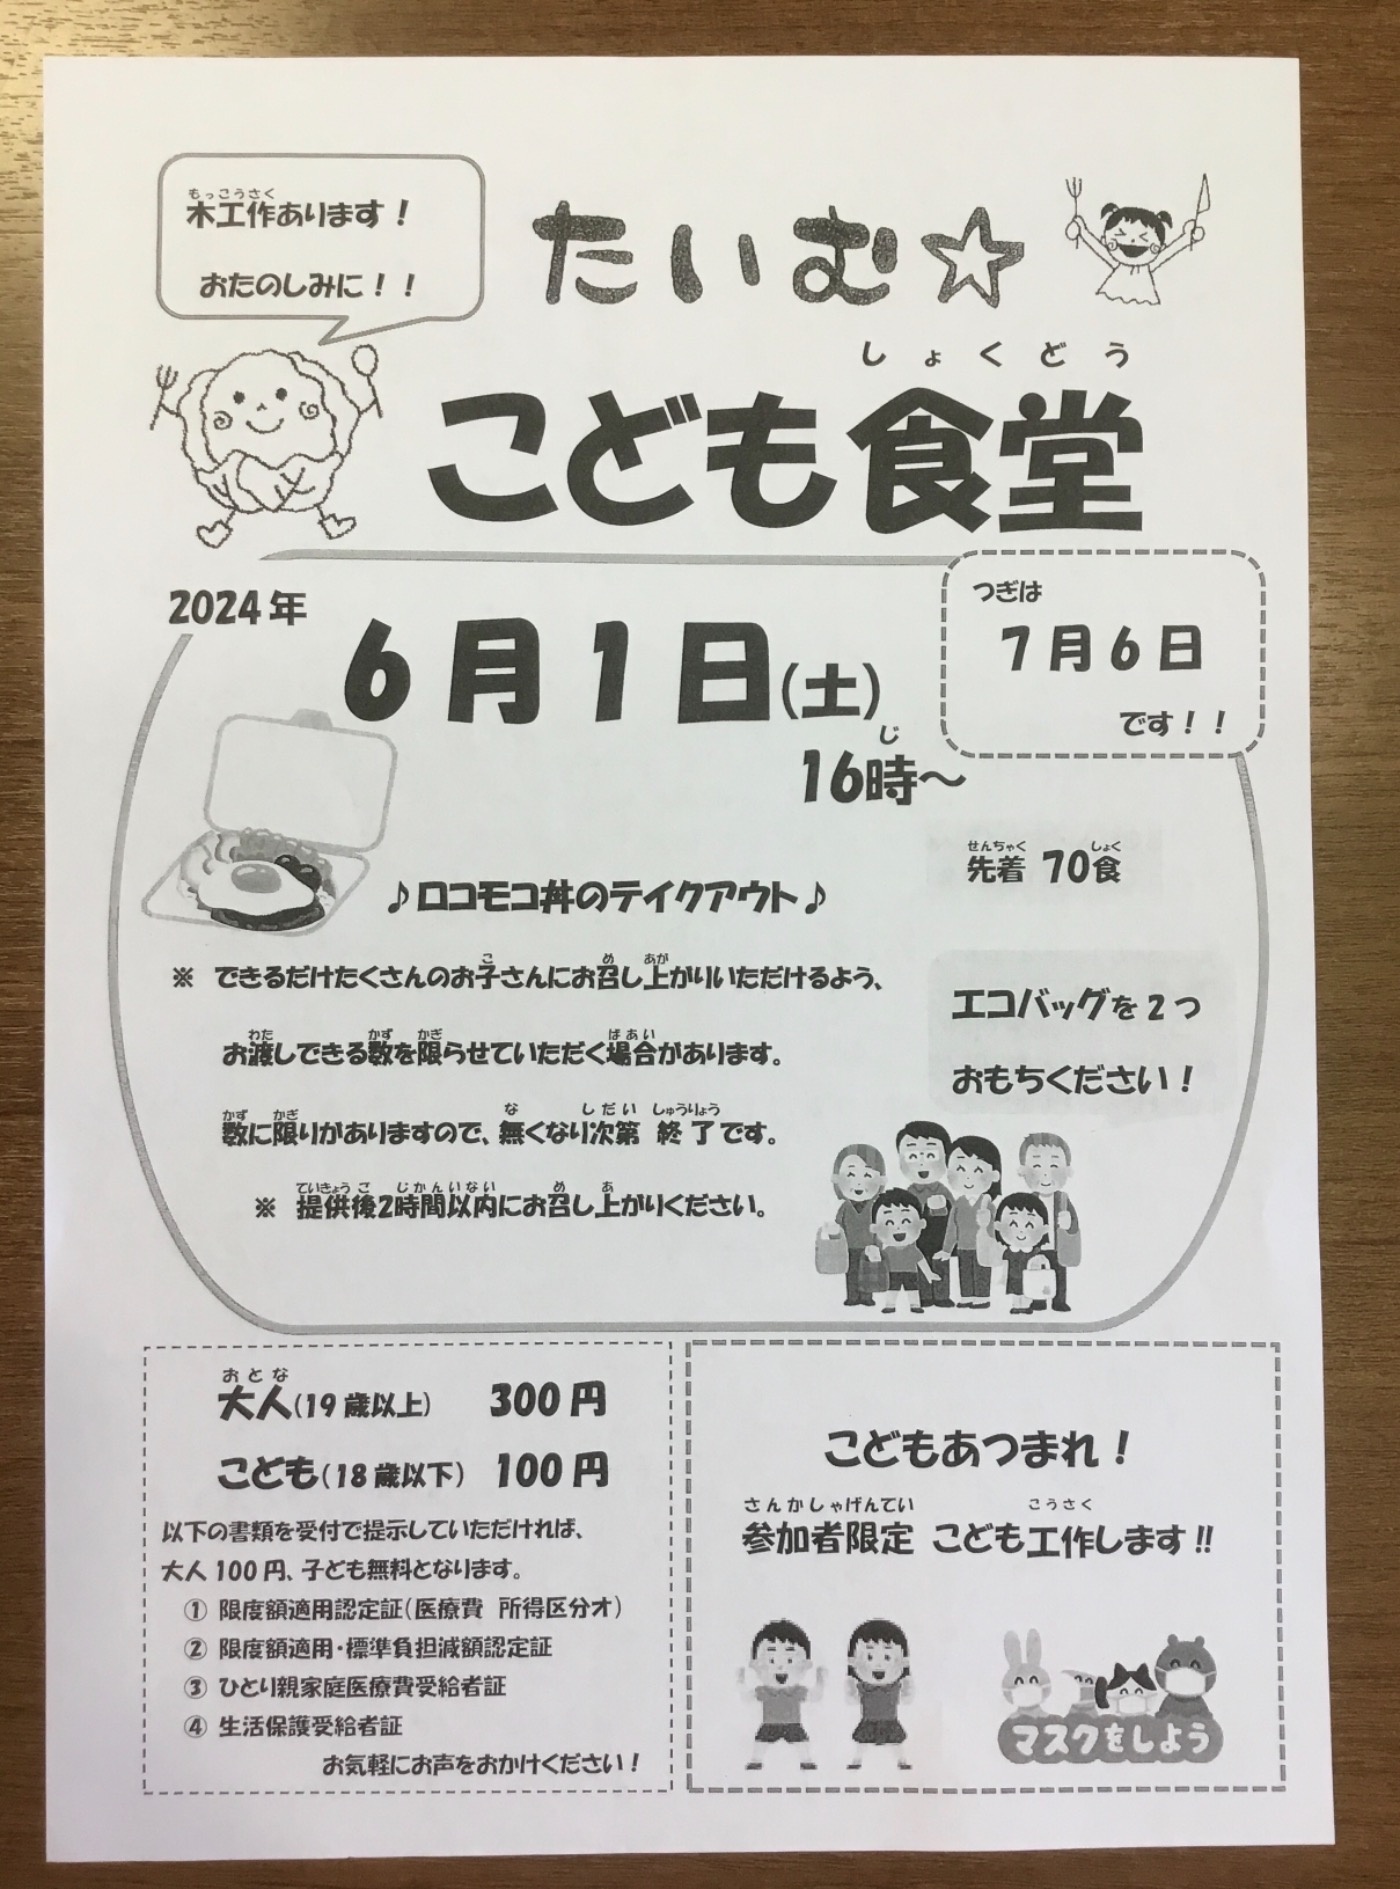 木工作あります！
おたのしみに！！
たいむ☆
こども食堂
2024年
6月1日(土)
16時～
つぎは
7月6日
です！！
先着 70食
♪ロコモコ丼のテイクアウト♪
※ できるだけたくさんのお子さんにお召し上がりいただけるよう、
お渡しできる数を限らせていただく場合があります。
数に限りがありますので、無くなり次第 終了です。
※ 提供後2時間以内にお召し上がりください。
エコバッグを2つ
おもちください！
大人(19歳以上) 300円
こども(18歳以下) 100円
以下の書類を受付で提示していただければ、
大人100円、子ども無料となります。
① 限度額適用認定証(医療費 所得区分オ)
② 限度額適用・標準負担減額認定証
③ ひとり親家庭医療費受給者証
④ 生活保護受給者証
お気軽にお声をおかけください！
こどもあつまれ！
参加者限定 こども工作します!!
マスクをしよう